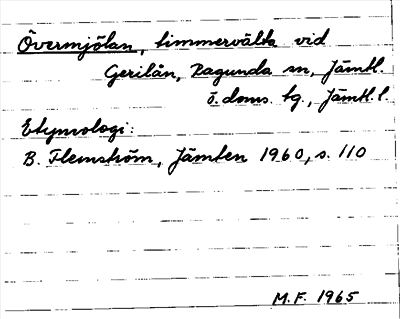 Övermjölan, timmervälta vid
Gerilån, Ragunda sn, Jämtl.
ö. doms. tg., Jämtl. l.
Etymologi:
B. Flemström, Jämten 1960, s. 110
M.F. 1965